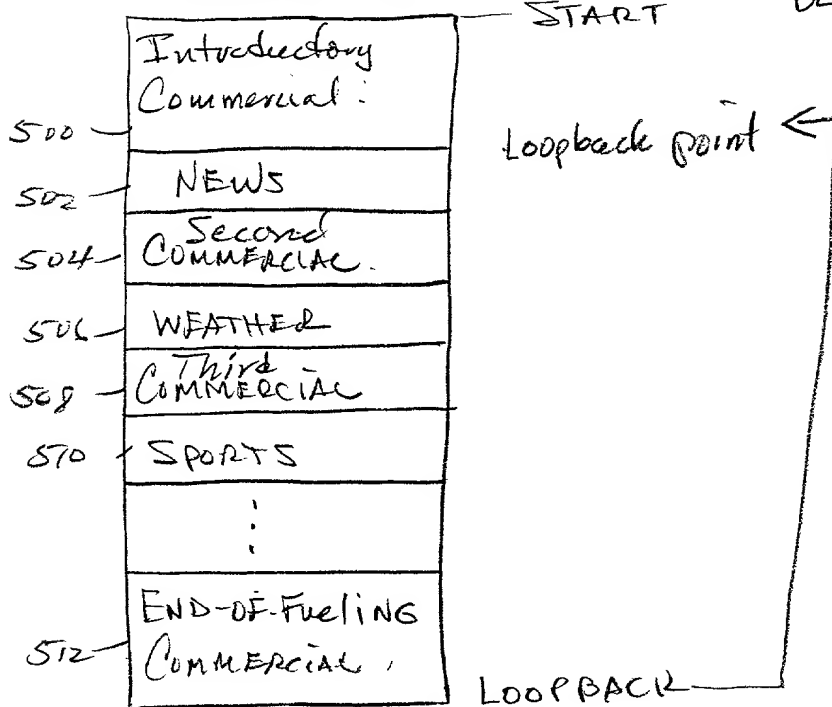 START
Introductory
Commercial:
500
Loopback point
502
NEWS
504
Second
COMMERCIAL.
506
WEATHER
508
Third
COMMERCIAL
510
SPORTS
END-OF-FueliNG
512
COMMERCIAL,
LOOPBACK